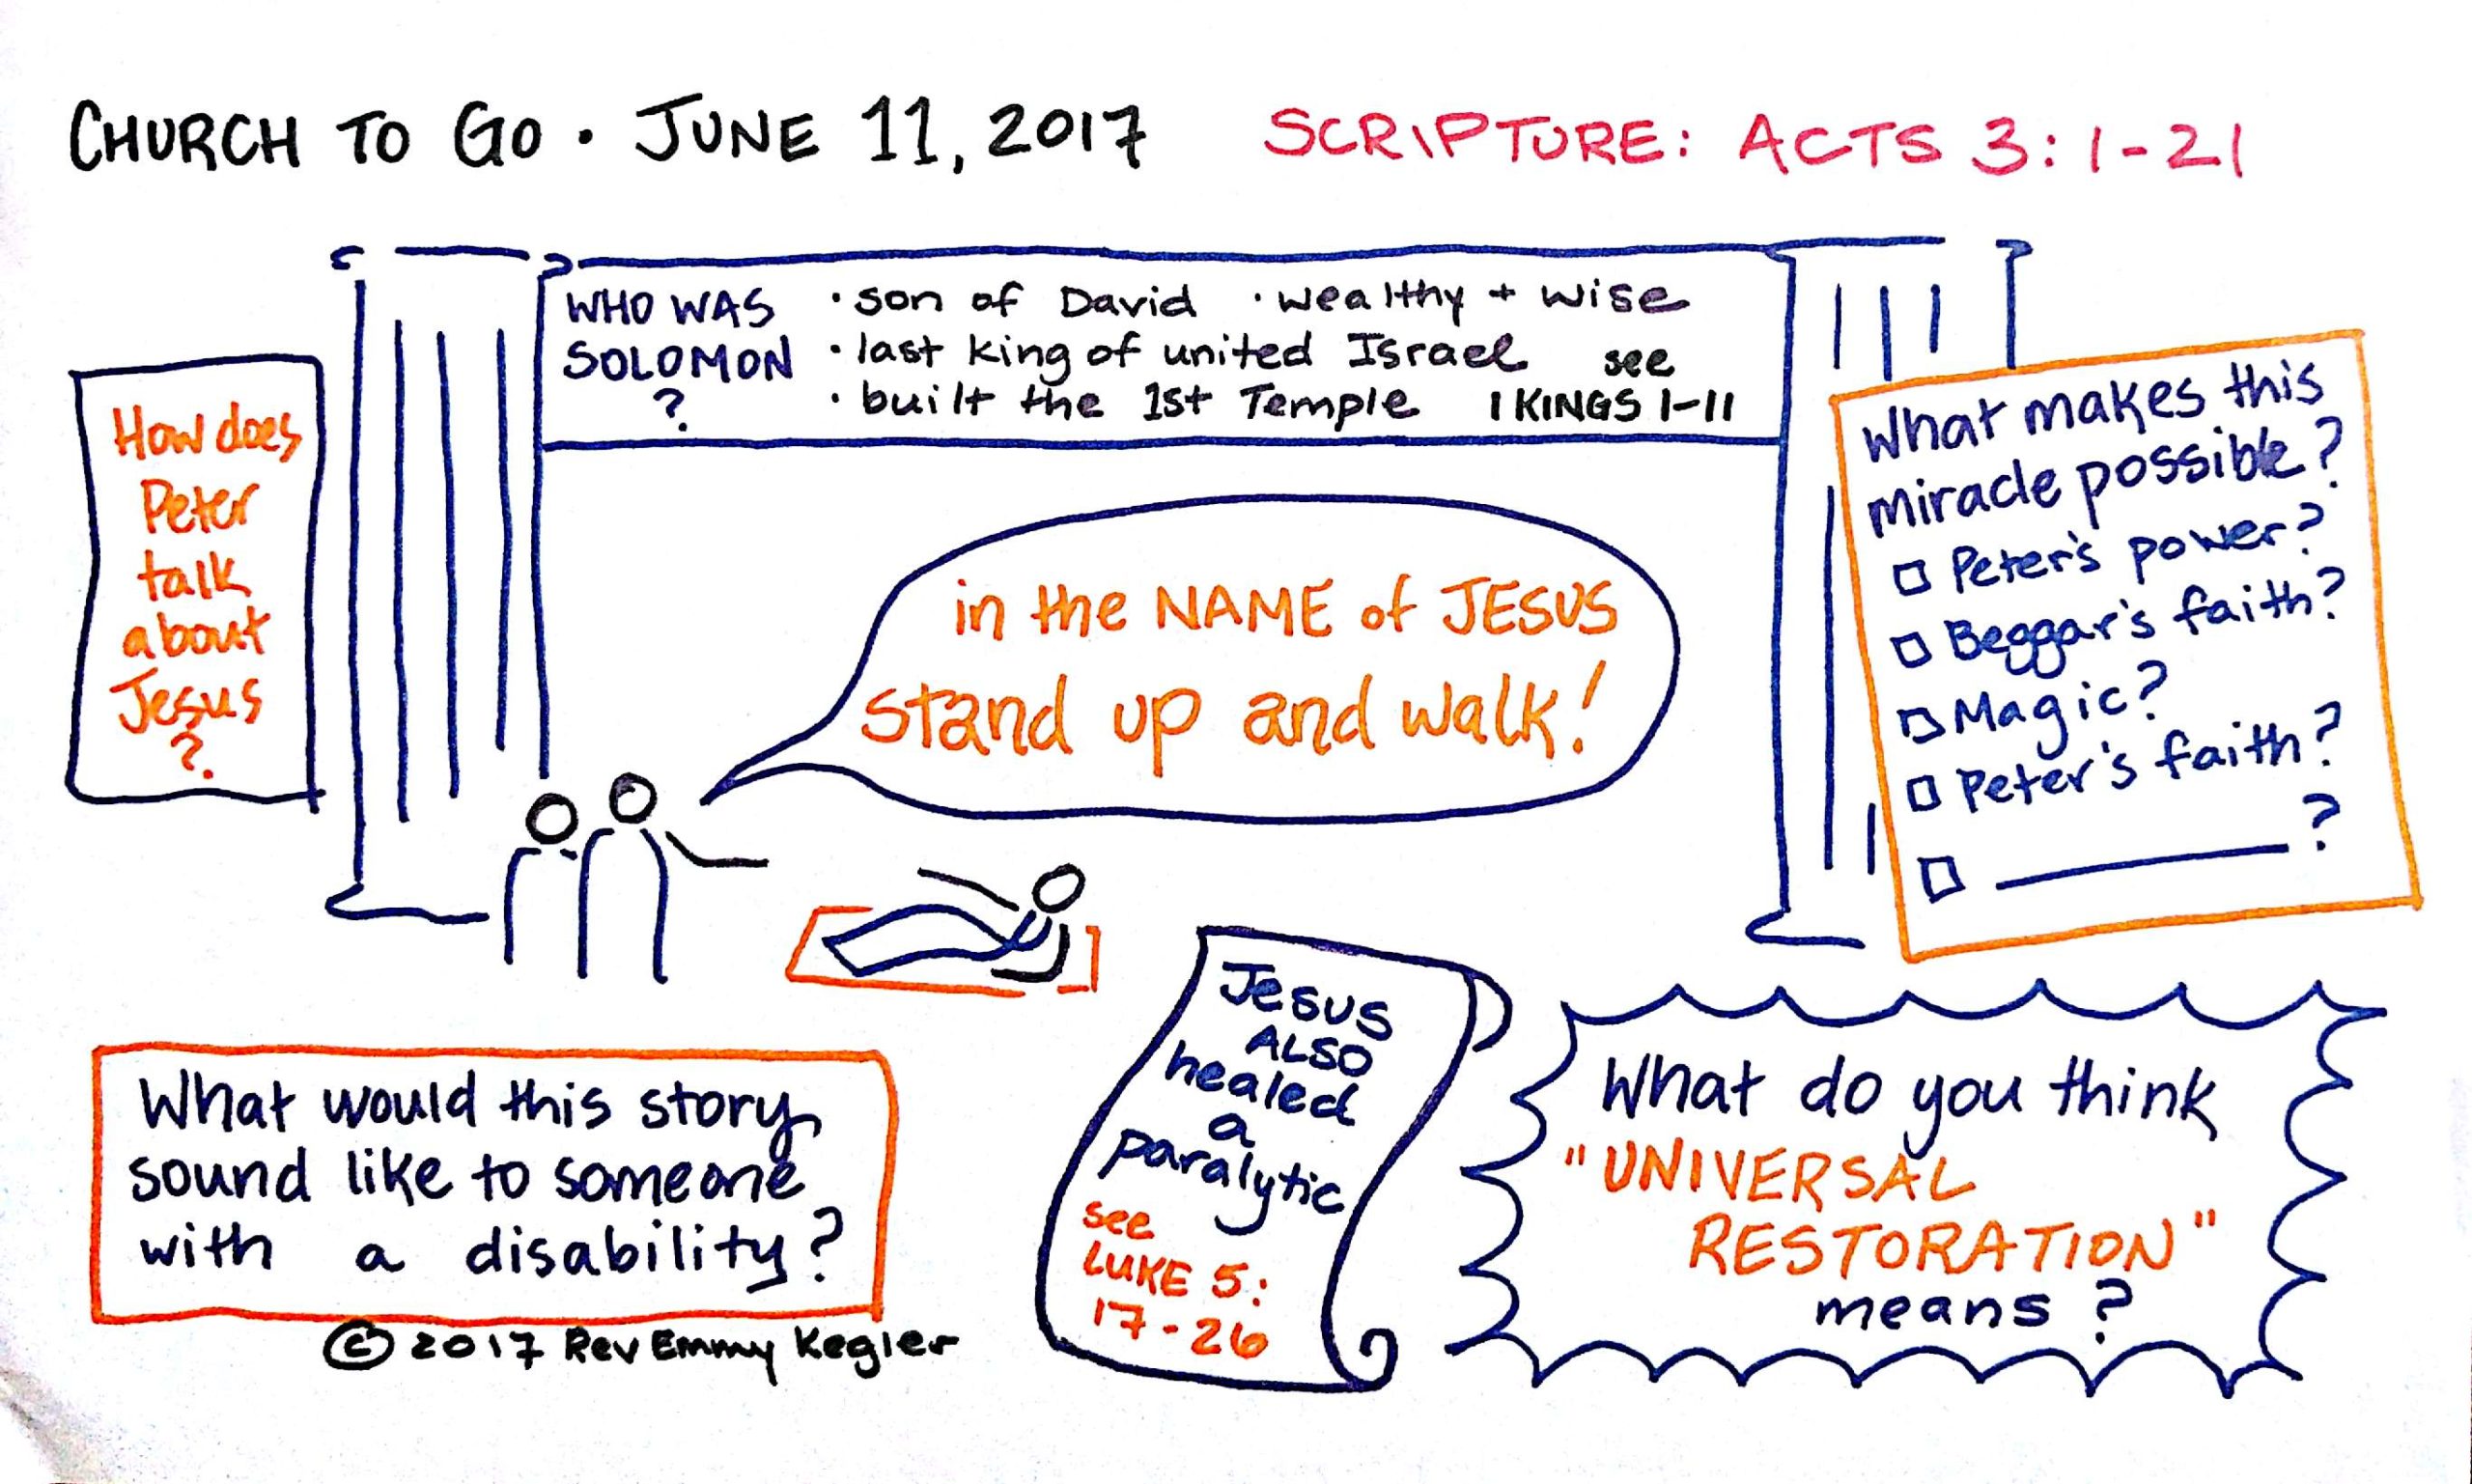 CHURCH TO GO · JUNE 11, 2017 SCRIPTURE: ACTS 3:1-21
WHO WAS
SOLOMON
?
· son of David · wealthy + wise
· last king of united Israel see
· built the 1st Temple 1 KINGS 1-11
How does
Peter
talk
about
Jesus
?
in the NAME of JESUS
stand up and walk!
What makes this
miracle possible?
□ Peter's power?
□ Beggar's faith?
□ Magic?
□ Peter's faith?
□ ________?
What would this story
sound like to someone
with a disability?
© 2017 Rev Emmy Kegler
Jesus
ALSO
healed
a
paralytic
see
LUKE 5:
17-26
What do you think
"UNIVERSAL
RESTORATION"
means?